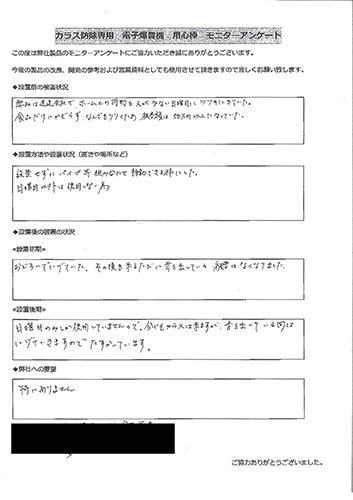 カラス防除専用 電子爆音機 用心棒 モニターアンケート
この度は弊社製品のモニターアンケートにご協力いただき誠にありがとうございます。
今後の製品の改良、開発の参考および営業資料としても使用させて頂きますので宜しくお願い致します。
◆設置前の被害状況
運送会社で、ホームの荷物を人が少ない日曜日に
食品だけにかぎらず、なんでもつつくため、被害額は
◆設置方法や設置状況（高さや場所など）
設置せずにパイプ等組み合わせ移動できる様にした。
日曜日以外は使用しない為
◆設備後の被害の状況
≪設置初期≫
おどろいてにげていた。その後も来るたびに音を出していたら被害はなくなりました。
≪設置後期≫
日曜日のみしか使用していませんので、今でもカラスは来ますが、音を出している間は
にげていきますので たすかっています。
◆弊社への要望
特にありません
ご協力ありがとうございました。